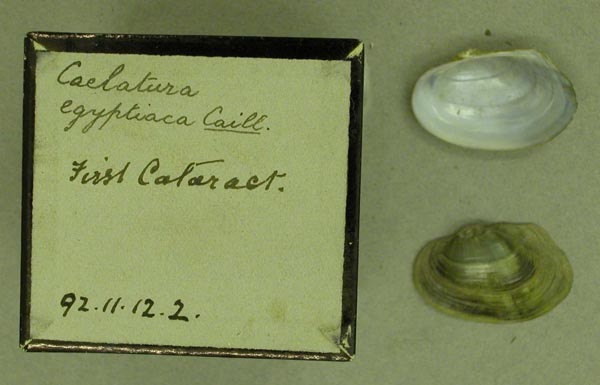 Caelatura
egyptiaca Caill.
First Cataract.
92.11.12.2.